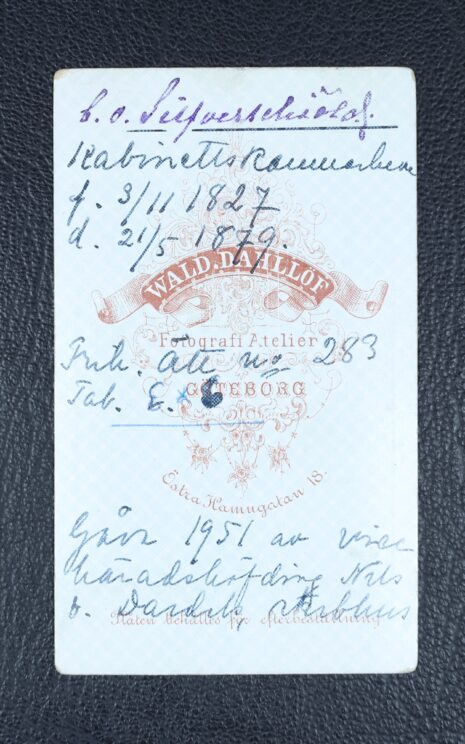 C. O. Silfverschiöld.
Kabinettskammarherre
f. 3/11 1827
d. 21/5 1879.
WALD. DAHLLÖF
Fotografi Atelier
Frih. ätt no 283
GÖTEBORG
Tab. 6
Östra Hamngatan 18.
Gåva 1951 av vice
häradshöfding Nils
v. Dardel,
Plåten behålles för efterbeställning